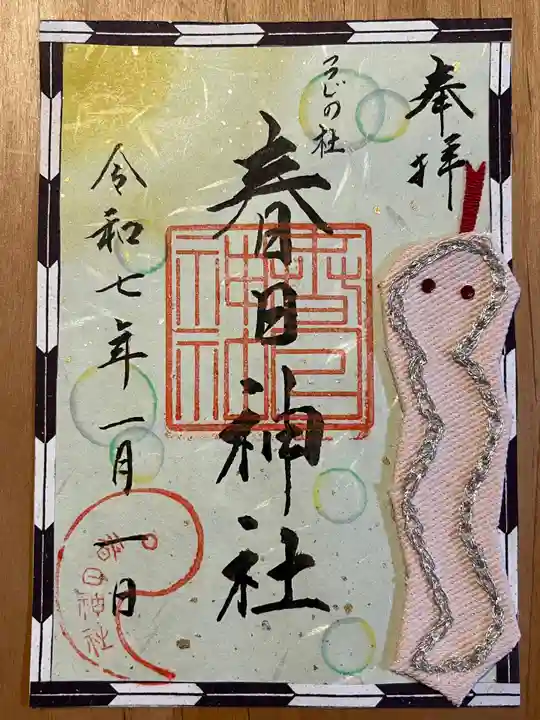 奉拝
うじの杜
春日神社
春日神社
令和七年一月一日
春日神社